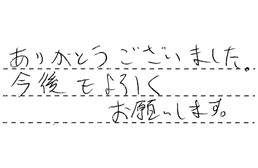 ありがとうございました。
今後もよろしく
お願いします。